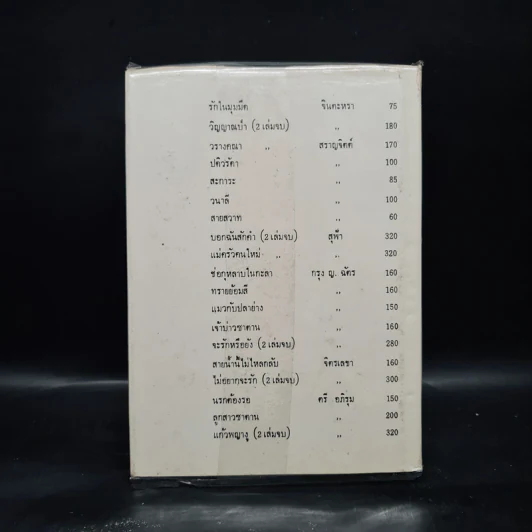 รักในมุมมืด จินตะหรา 75
วิญญาณป่า (2 เล่มจบ) ,, 180
วรางคณา ,, สราญจิตต์ 170
ปติวรัดา ,, 100
สะการะ ,, 85
วนาลี ,, 100
สายสวาท ,, 60
บอกฉันสักคำ (2 เล่มจบ) สุฟ้า 320
แม่ครัวคนใหม่ ,, ,, 320
ช่อกุหลาบในกะลา กรุง ญ. ฉัตร 160
ทรายย้อมสี ,, 160
แมวกับปลาย่าง ,, 150
เจ้าบ่าวซาตาน ,, 160
จะรักหรือยัง (2 เล่มจบ) ,, 280
สายน้ำนี้ไม่ไหลกลับ จิตรเลขา 160
ไม่อยากจะรัก (2 เล่มจบ) ,, 300
นรกต้องรอ ตรี อภิรุม 150
ลูกสาวซาตาน ,, 200
แก้วพญางู (2 เล่มจบ) ,, 320